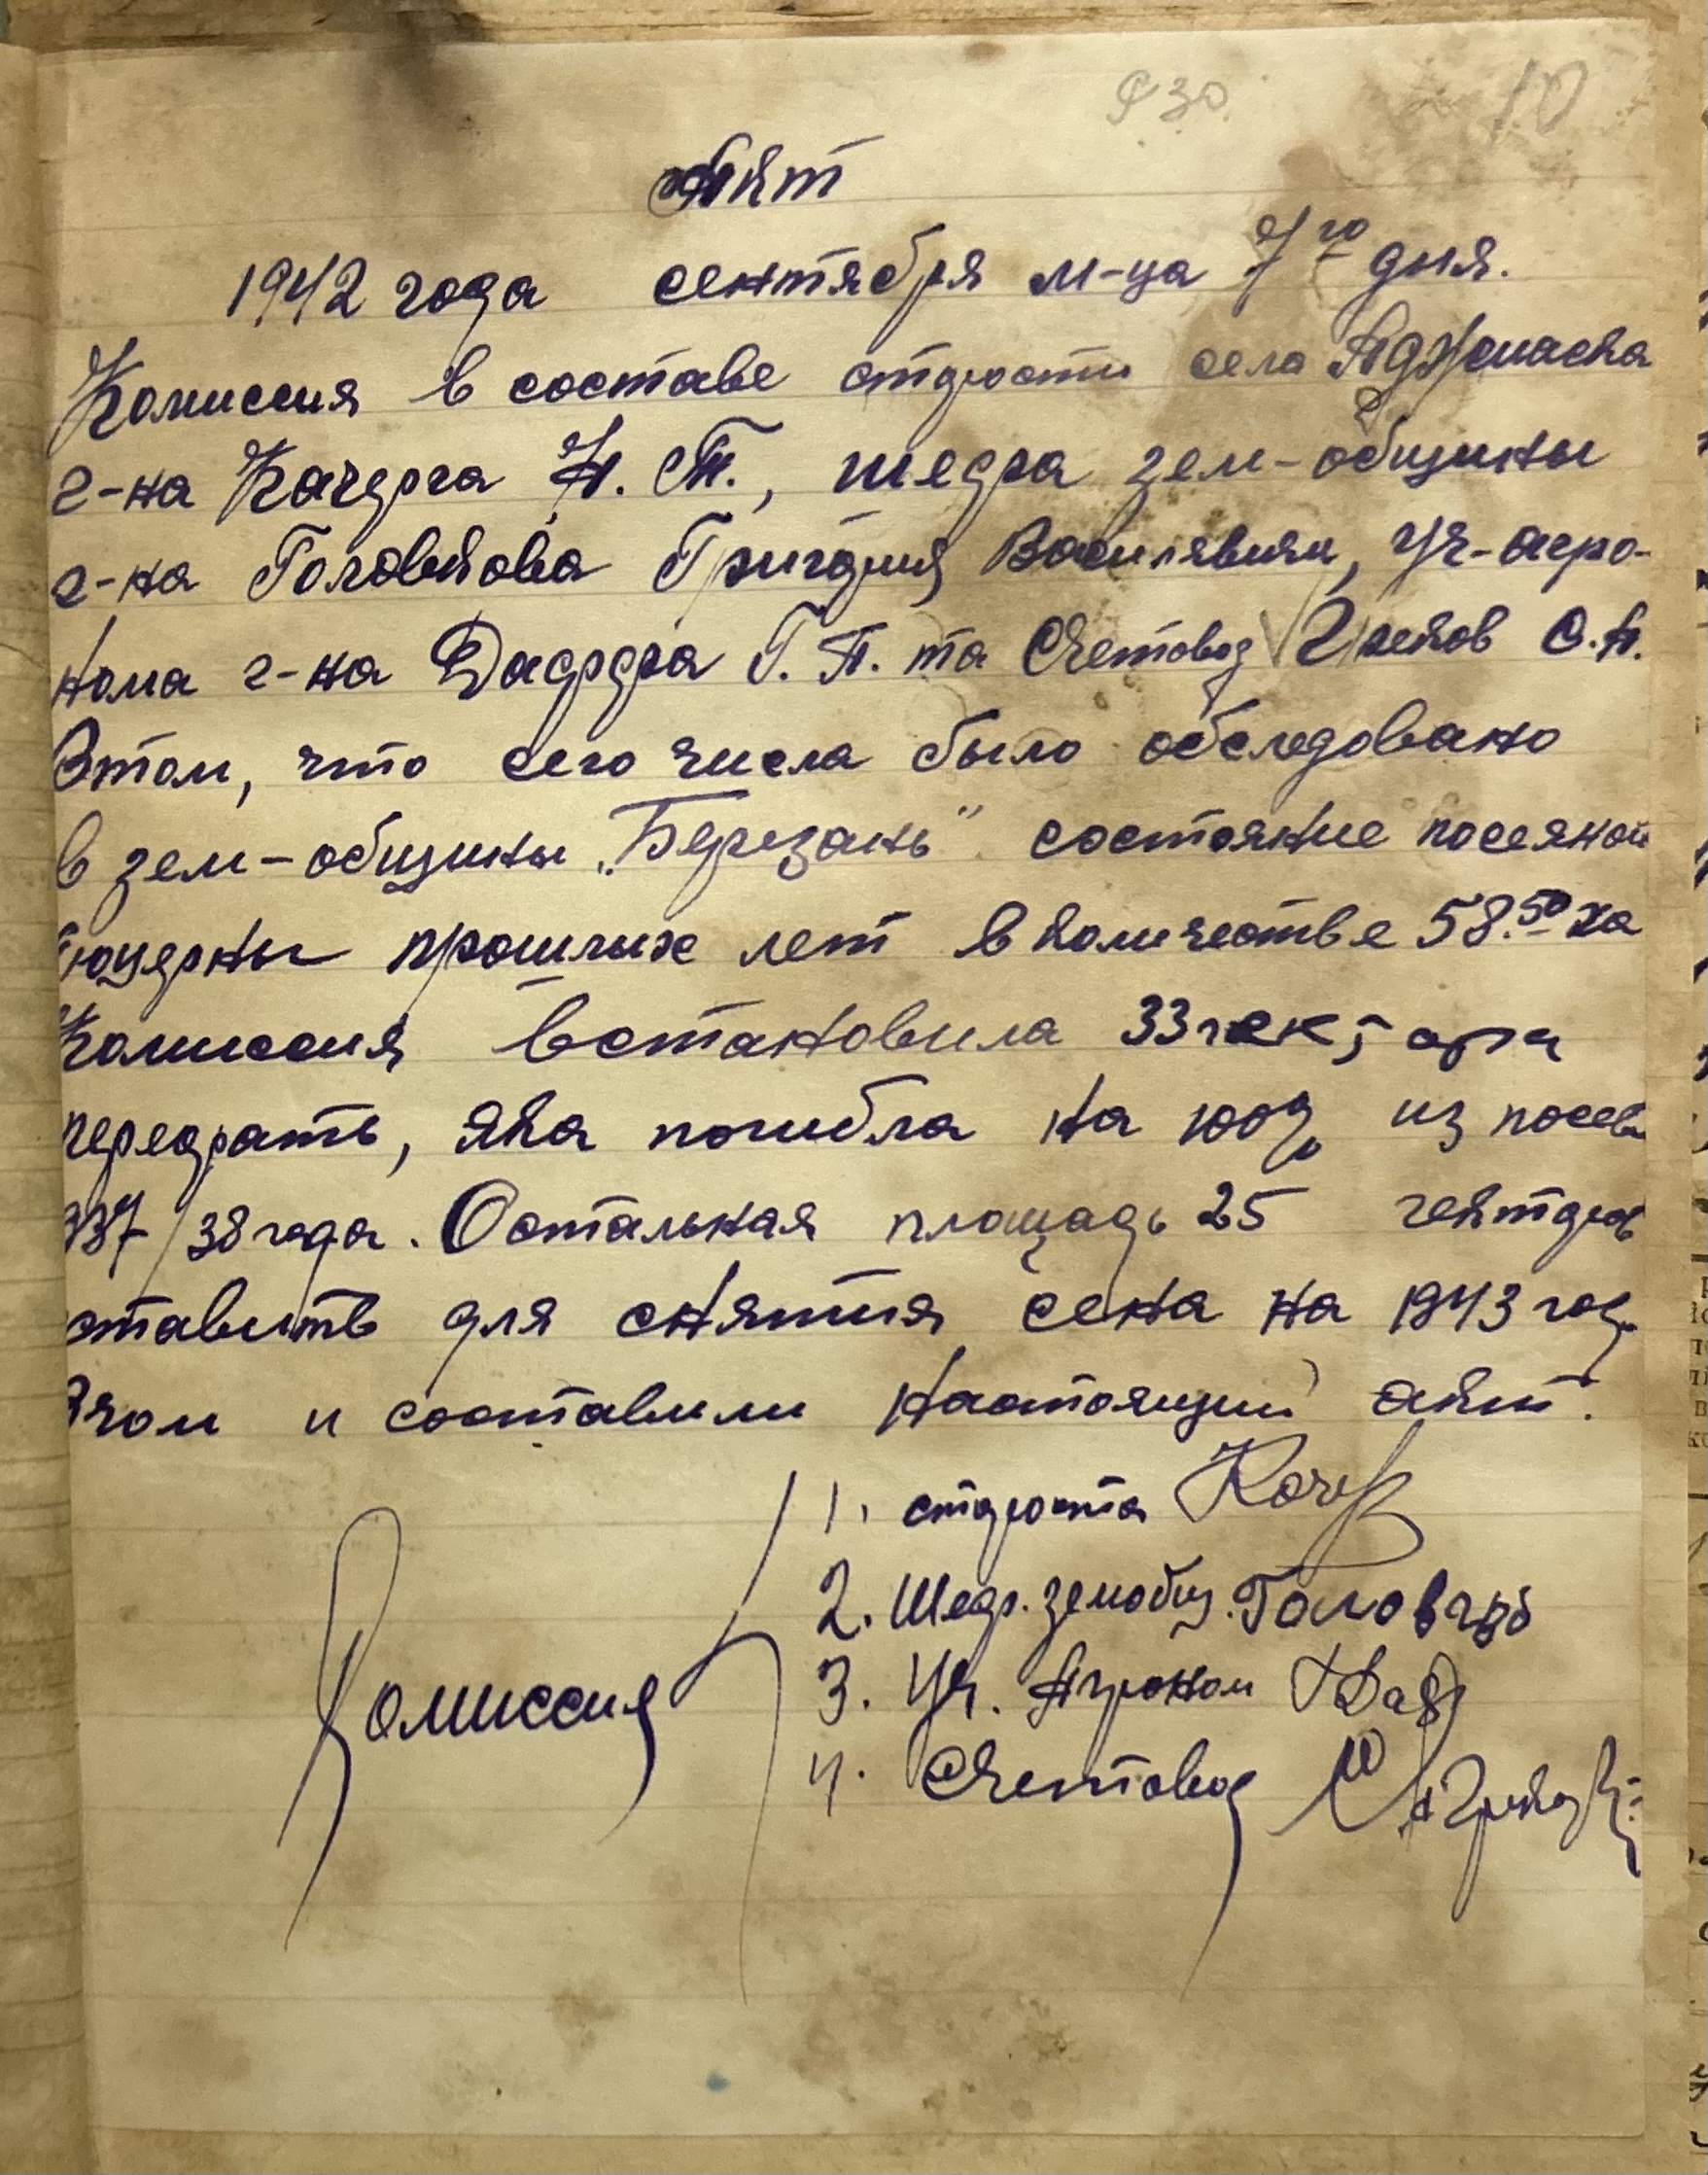 930
10
Акт
1942 года сентября м-ца 7го дня.
Комиссия в составе старости села Аджиаска
г-на Качерга Н. Т., шефра зем-общины
г-на Головкова Григория Василявича, Уч-агро-
нома г-на г. П. та Счетовод О. А.
Втом, что сего числа было обследовано
в зем-общины „Березань" состояние посеяной
люцерны прошлых лет в количестве 58.50 ха
Комиссия встановила 33 гектара
переорать, яка погибла на 100% из посева
937/38 года. Остальная площадь 25 гектаров
ставить для снятия сена на 1943 год.
Вчом и составили настоящий акт.
1. староста Кочер
2. Шефр. земобщ.
3. Уч. Агроном
Комиссия
4. Счетовод